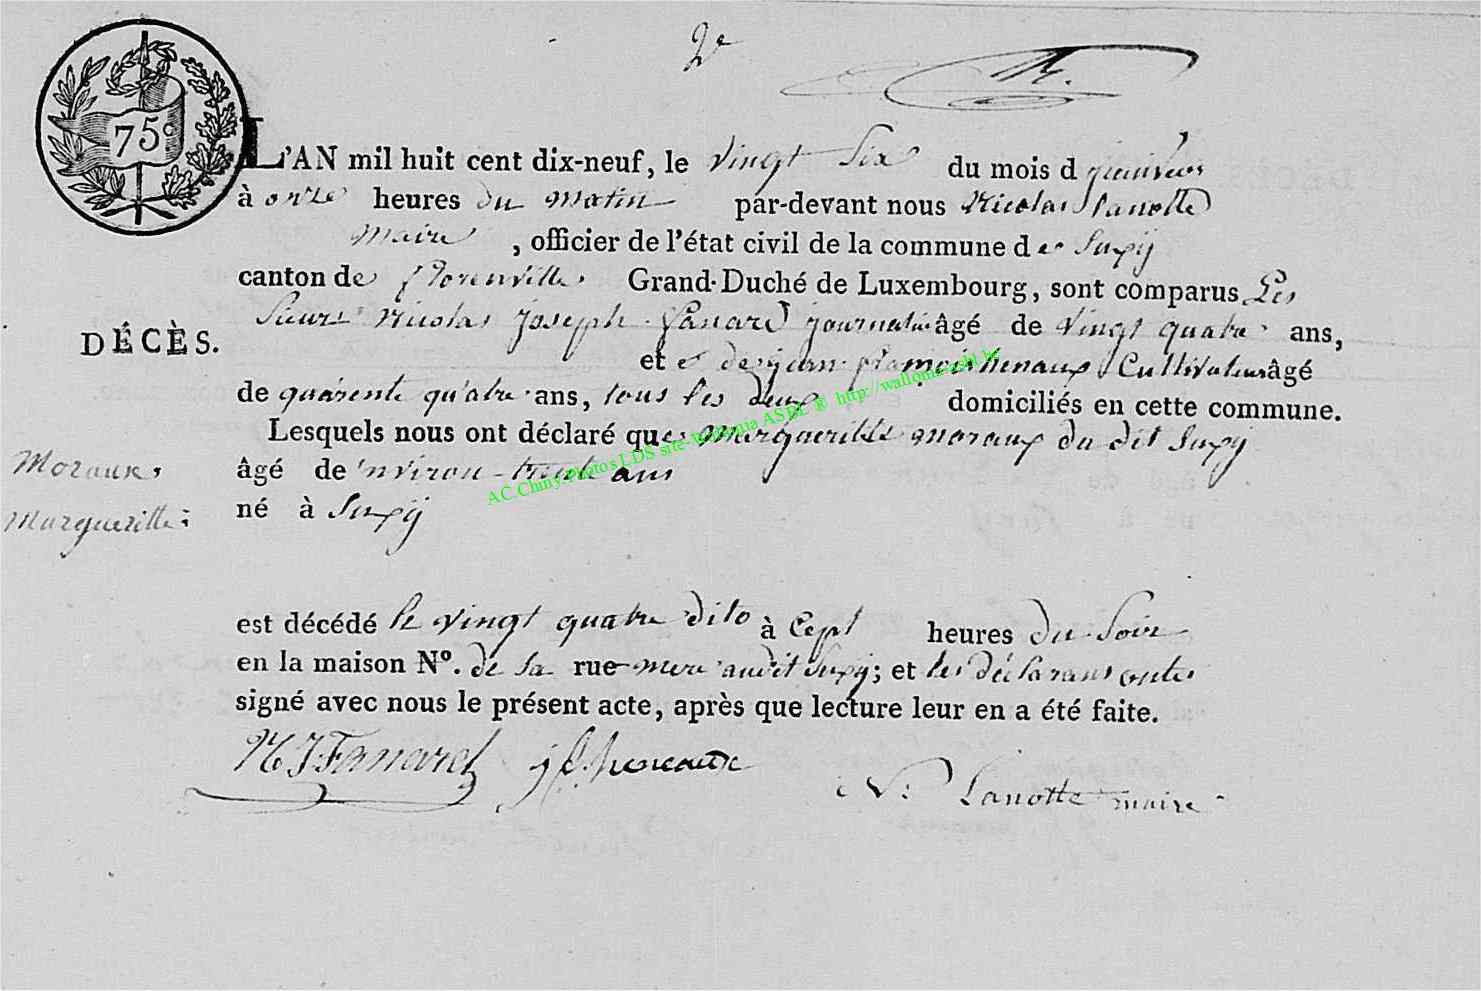 2e
75c
L'AN mil huit cent dix-neuf, le vingt Six du mois d
à onze heures du matin par-devant nous Nicolas Lanotte
maire, officier de l'état civil de la commune de Suxÿ
canton de florenville Grand-Duché de Luxembourg, sont comparus Les
Sieurs Nicolas joseph fanard journalier âgé de vingt quatre ans,
DÉCÈS.
et henaux Cultivateur âgé
de quarente quatre ans, tous les deux domiciliés en cette commune.
Lesquels nous ont déclaré que Margueritte moraux du dit Suxÿ
Moraux,
Margueritte:
âgé de environ ans
né à Suxÿ
est décédé le vingt quatre dito à Cept heures du Soir
en la maison No. de Sa rue mere audit Suxÿ; et les déclarans ontes
signé avec nous le présent acte, après que lecture leur en a été faite.
N J Fanard
N. Lanotte maire
AC Chiny Photos LDS site-Wallonia ASBL ® http://wallonia-asbl.be